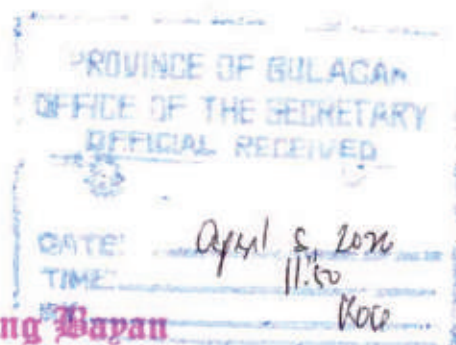 PROVINCE OF BULACAN
OFFICE OF THE SECRETARY
OFFICIAL RECEIVED
DATE: April
TIME: 11:50
BY:
ng Bayan